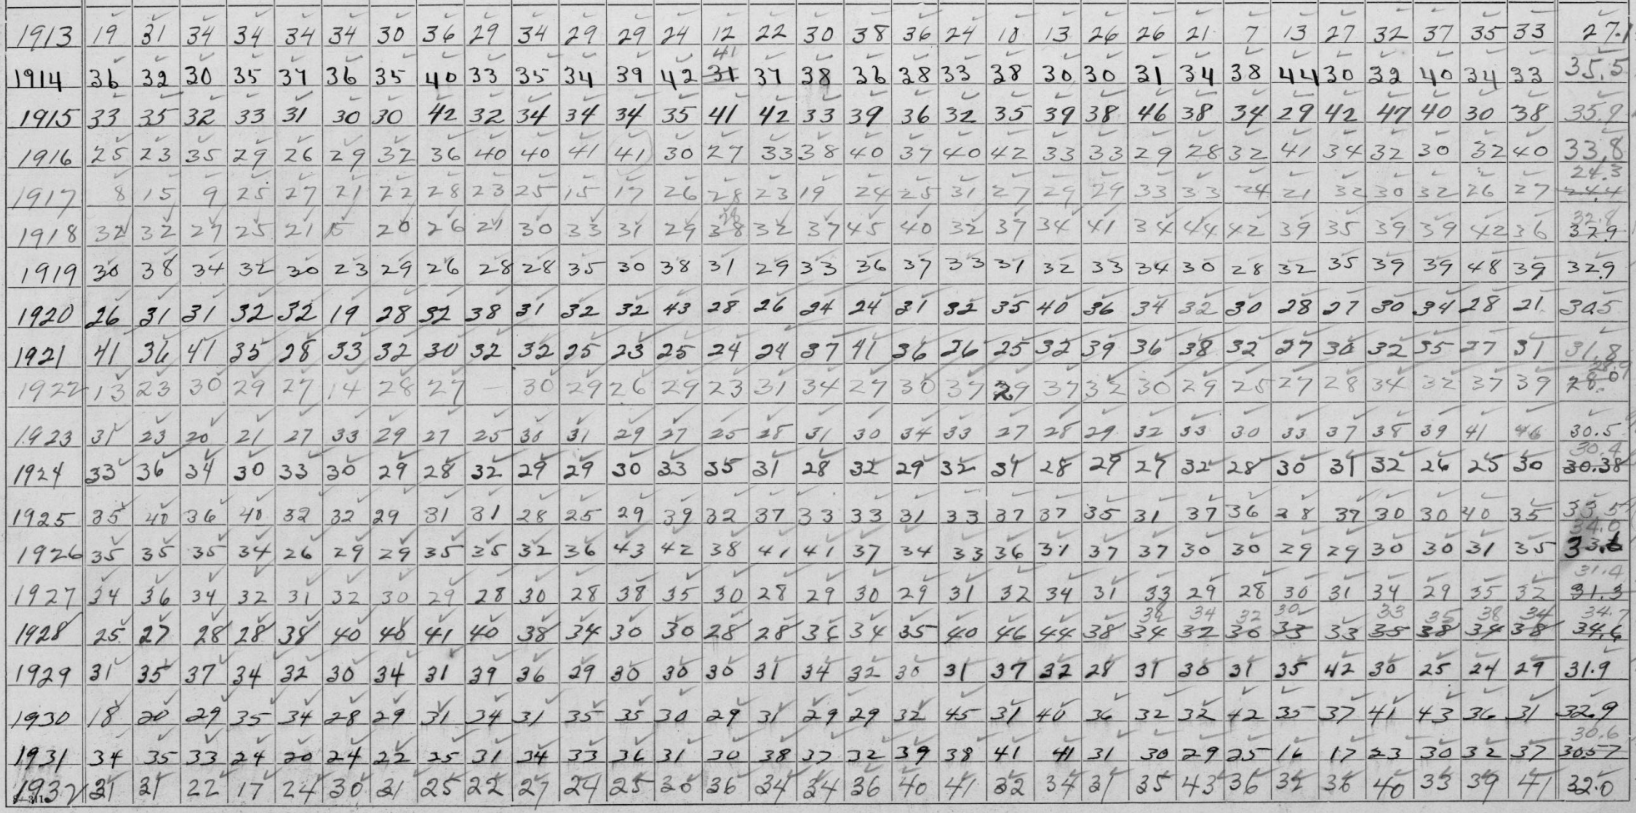 1913 19 31 34 34 34 34 30 36 29 34 29 29 24 12 22 30 38 36 24 18 13 26 26 21 7 13 27 32 37 35 33 27.1
41
1914 36 32 30 35 37 36 35 40 33 35 34 39 42 31 37 38 36 38 33 38 30 30 31 34 38 44 30 32 40 34 33 35.5
1915 33 35 32 33 31 30 30 42 32 34 34 34 35 41 42 33 39 36 32 35 39 38 46 38 34 29 42 47 40 30 38 35.9
1916 25 23 35 29 26 29 32 36 40 40 41 41 30 27 33 38 40 37 40 42 33 33 29 28 32 41 34 32 30 32 40 33.8
24.3
1917 8 15 9 25 27 21 22 28 23 25 15 17 26 28 23 19 24 25 31 27 29 29 33 33 24 21 32 30 32 26 27 24.4
32.8
1918 32 32 27 25 21 15 20 26 27 30 33 31 29 38 32 37 45 40 32 37 34 41 34 44 42 39 35 39 39 42 36 32.9
1919 30 38 34 32 30 23 29 26 28 28 35 30 38 31 29 33 36 37 33 31 32 33 34 30 28 32 35 39 39 48 39 32.9
1920 26 31 31 32 32 19 28 32 38 31 32 32 43 28 26 24 24 31 32 35 40 36 34 32 30 28 27 30 34 28 21 30.5
1921 41 36 41 35 28 33 32 30 32 32 25 23 25 24 24 37 41 36 26 25 32 39 36 38 32 27 30 32 35 27 31 31.8
28.9
1922 13 23 30 29 27 14 28 27 — 30 29 26 29 23 31 34 27 30 37 29 37 32 30 29 25 27 28 34 32 37 39 28.0
1923 31 23 20 21 27 33 29 27 25 30 31 29 27 25 28 31 30 34 33 27 28 29 32 33 30 33 37 38 39 41 46 30.5
30.4
1924 33 36 34 30 33 30 29 28 32 29 29 30 33 35 31 28 32 29 32 31 28 29 27 32 28 30 31 32 26 25 30 30.38
1925 35 40 36 40 32 32 29 31 31 28 25 29 39 32 37 33 33 31 33 37 37 35 31 37 36 28 37 30 30 40 35 33.5
34.0
1926 35 35 35 34 26 29 29 35 35 32 36 43 42 38 41 41 37 34 33 36 31 37 37 30 30 29 29 30 30 31 35 33.6
31.4
1927 34 36 34 32 31 32 30 29 28 30 28 38 35 30 28 29 30 29 31 32 34 31 33 29 28 30 31 34 29 35 32 31.3
38 34 32 30 33 35 38 34 34.7
1928 25 27 28 28 38 40 40 41 40 38 34 30 30 28 28 36 34 35 40 46 44 38 34 32 30 33 33 35 38 34 38 34.6
1929 31 35 37 34 32 30 34 31 39 36 29 30 30 30 31 34 32 30 31 37 32 28 31 30 31 35 42 30 25 24 29 31.9
1930 18 20 29 35 34 28 29 31 34 31 35 35 30 29 31 29 29 32 45 31 40 36 32 32 42 35 37 41 43 36 31 32.9
30.6
1931 34 35 33 24 20 24 22 25 31 34 33 36 31 30 38 37 32 39 38 41 41 31 30 29 25 16 17 23 30 32 37 30.57
1932 21 21 22 17 24 30 21 25 22 27 24 25 30 36 34 34 36 40 41 32 34 31 35 43 36 32 36 40 33 39 41 32.0